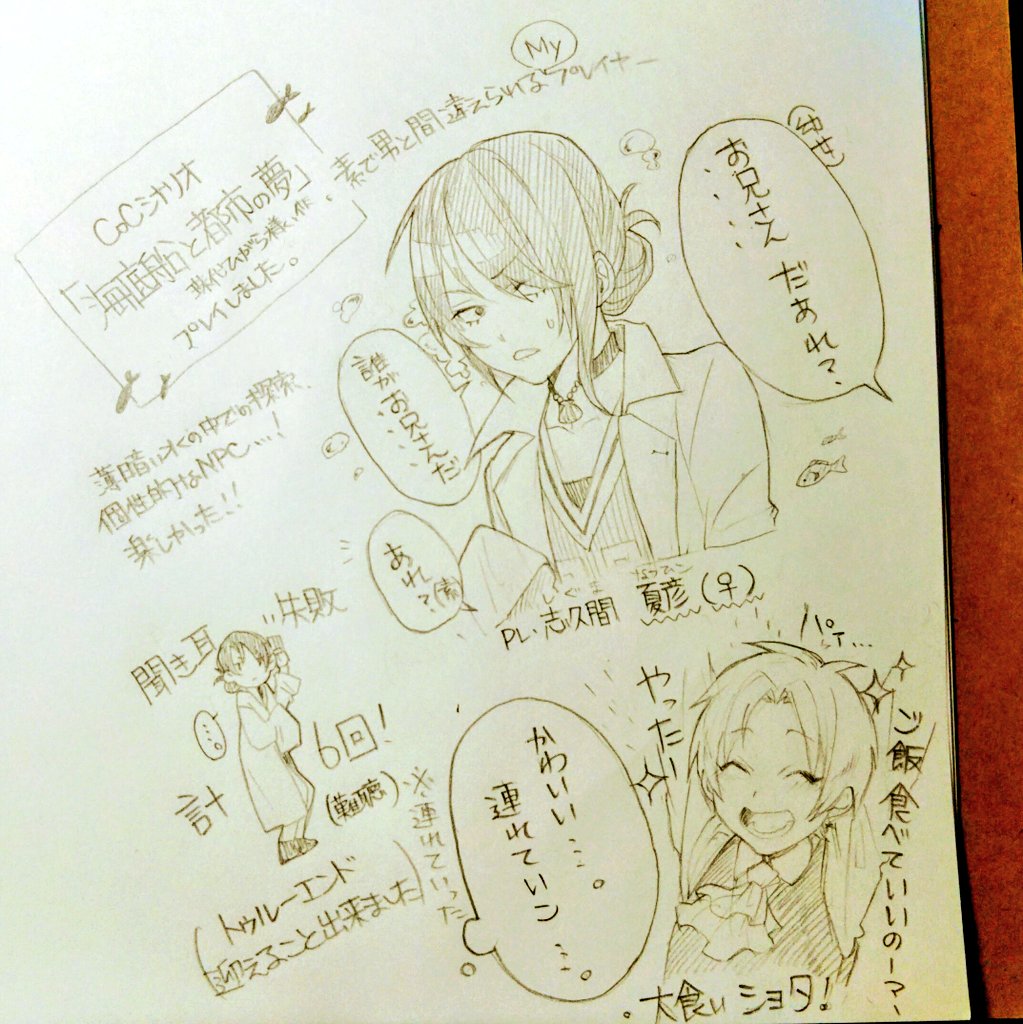 CoCシナリオ
「海底船と都市の夢」
プレイしました。
My
素で男と間違えられるプレイヤー
(幼女)
お兄さん
だぁれ?
誰が
お兄さんだ
あれ?(素)
薄暗い
個性的なNPC…!
楽しかった!!
PL.志久間 夏彦(♀)
聞き耳
失敗
…。
計
6回!
(難聴)
トゥルーエンド
迎えること出来ました
※連れていった
かわいい…。
連れていこ…。
やった!
パァ…
ご飯食べていいのー?
大食いショタ!